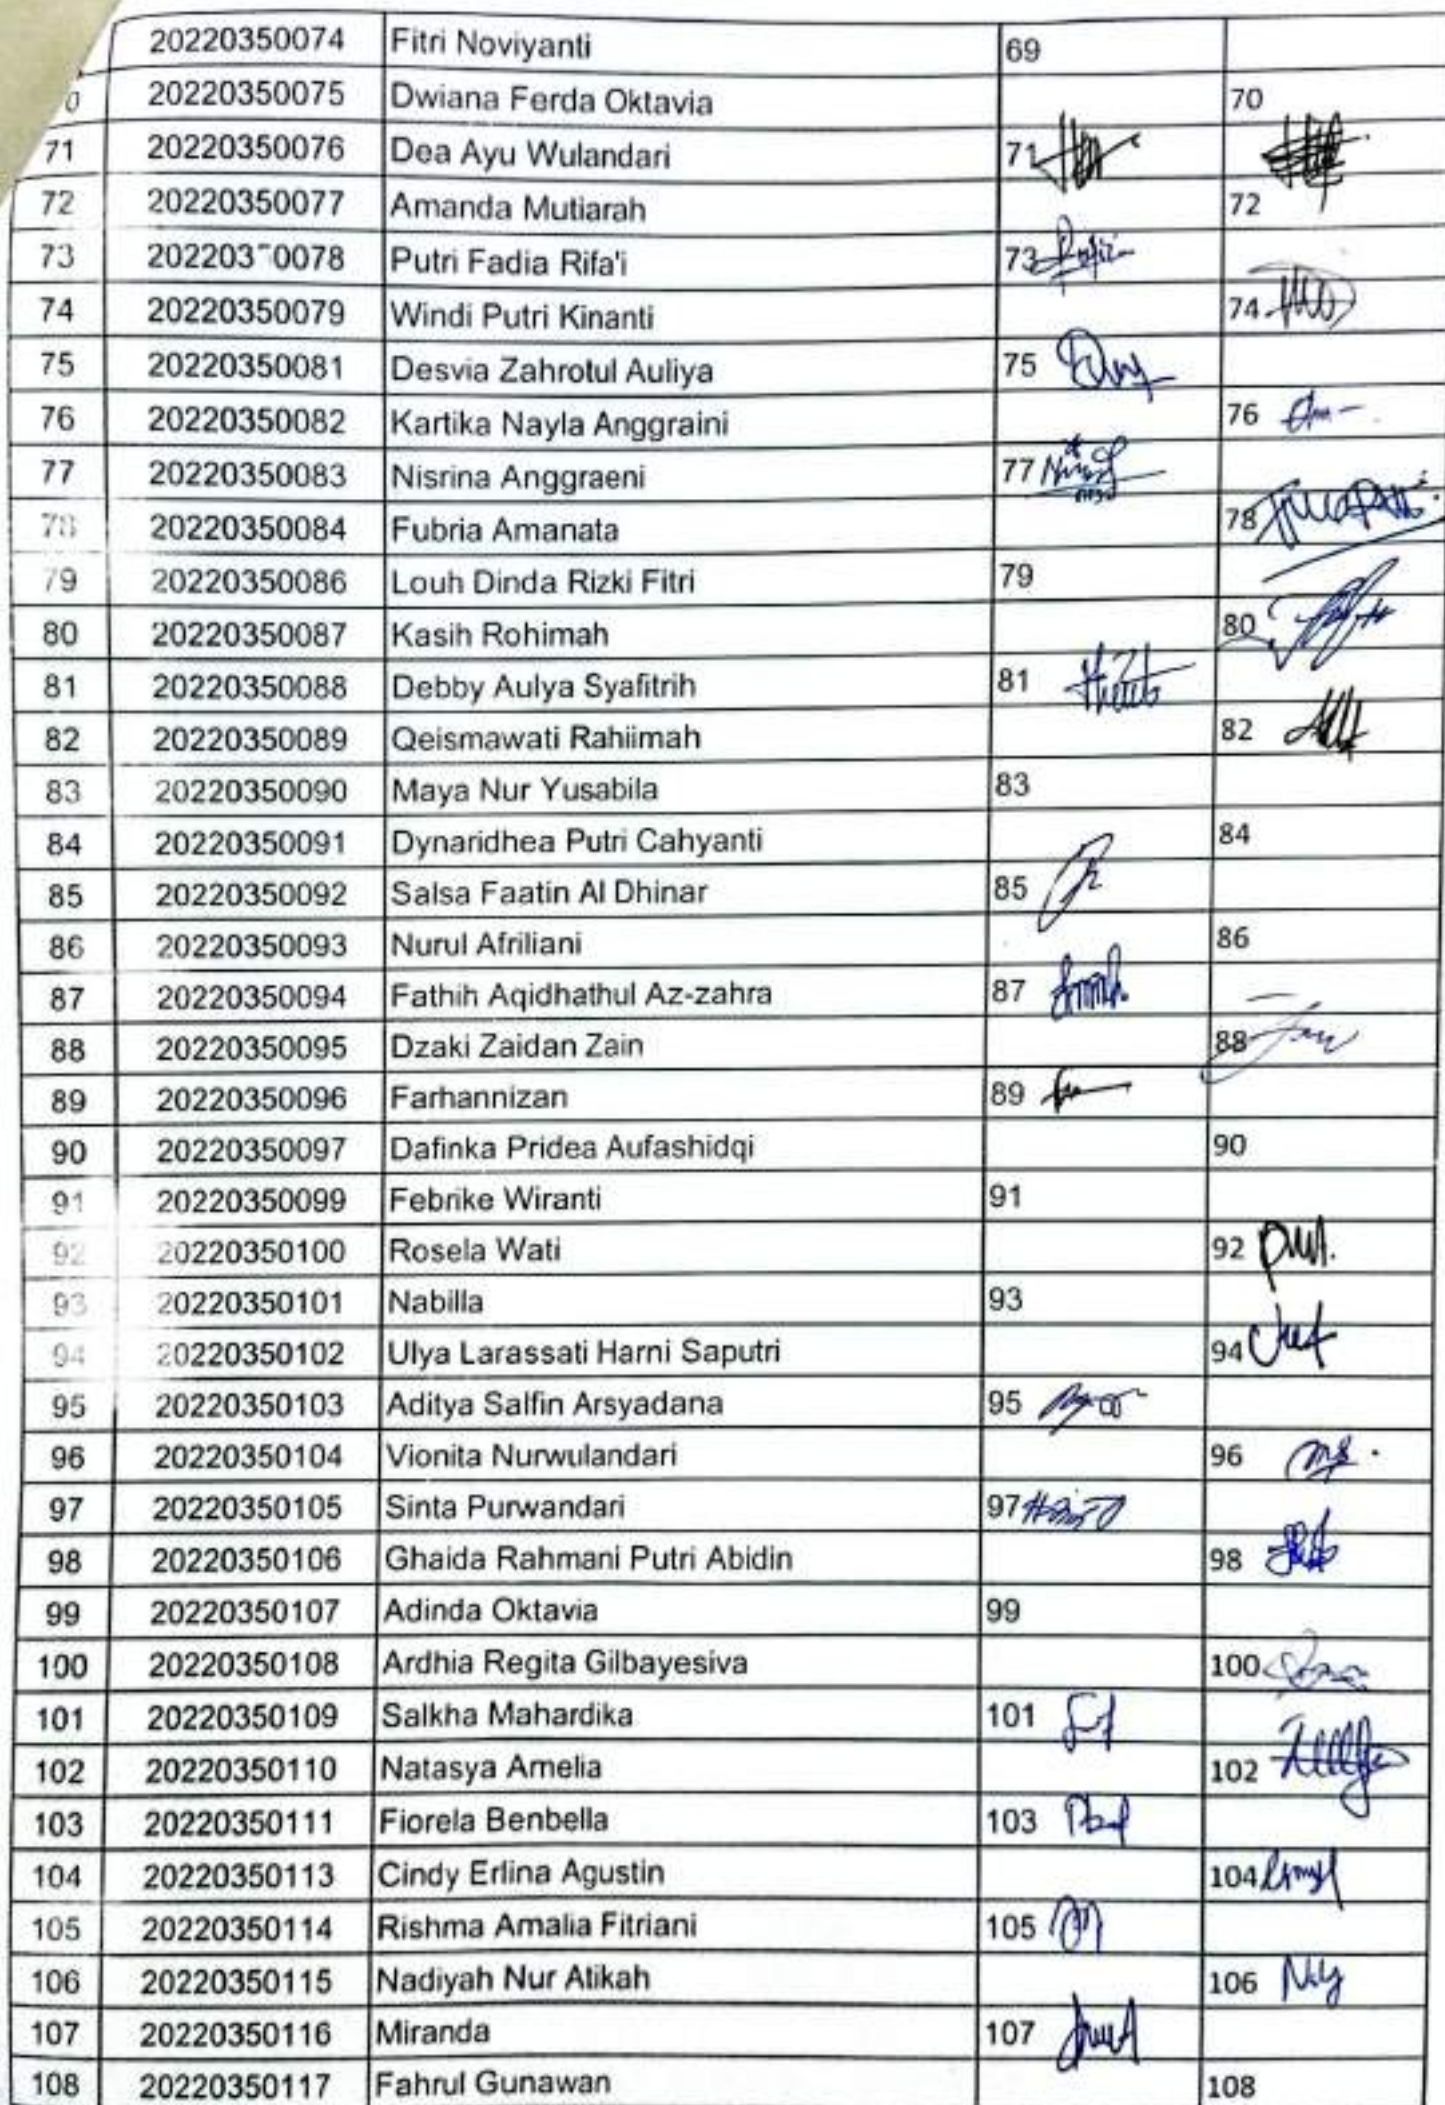 20220350074 Fitri Noviyanti 69
0 20220350075 Dwiana Ferda Oktavia 70
71 20220350076 Dea Ayu Wulandari 71
72 20220350077 Amanda Mutiarah 72
73 20220350078 Putri Fadia Rifa'i 73
74 20220350079 Windi Putri Kinanti 74
75 20220350081 Desvia Zahrotul Auliya 75
76 20220350082 Kartika Nayla Anggraini 76
77 20220350083 Nisrina Anggraeni 77
78 20220350084 Fubria Amanata 78
79 20220350086 Louh Dinda Rizki Fitri 79
80 20220350087 Kasih Rohimah 80
81 20220350088 Debby Aulya Syafitrih 81
82 20220350089 Qeismawati Rahiimah 82
83 20220350090 Maya Nur Yusabila 83
84 20220350091 Dynaridhea Putri Cahyanti 84
85 20220350092 Salsa Faatin Al Dhinar 85
86 20220350093 Nurul Afriliani 86
87 20220350094 Fathih Aqidhathul Az-zahra 87
88 20220350095 Dzaki Zaidan Zain 88
89 20220350096 Farhannizan 89
90 20220350097 Dafinka Pridea Aufashidqi 90
91 20220350099 Febrike Wiranti 91
92 20220350100 Rosela Wati 92
93 20220350101 Nabilla 93
94 20220350102 Ulya Larassati Harni Saputri 94
95 20220350103 Aditya Salfin Arsyadana 95
96 20220350104 Vionita Nurwulandari 96
97 20220350105 Sinta Purwandari 97
98 20220350106 Ghaida Rahmani Putri Abidin 98
99 20220350107 Adinda Oktavia 99
100 20220350108 Ardhia Regita Gilbayesiva 100
101 20220350109 Salkha Mahardika 101
102 20220350110 Natasya Amelia 102
103 20220350111 Fiorela Benbella 103
104 20220350113 Cindy Erlina Agustin 104
105 20220350114 Rishma Amalia Fitriani 105
106 20220350115 Nadiyah Nur Atikah 106
107 20220350116 Miranda 107
108 20220350117 Fahrul Gunawan 108